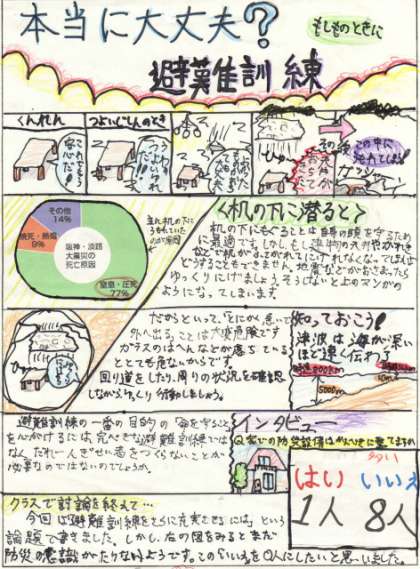 本当に大丈夫?
もしものときに
避難訓練
くんれん
つよいじしんのとき
これでもう安心だ!!
その後
この中にうもれてしまう!
ガッシャーン
その他
14%
焼死・熱傷
9%
阪神・淡路
大震災の
死亡原因
窒息・圧死
77%
主に机の下に
うもれていた
のが原因
<机の下に潜ると>
机の下にもぐることは自身の頭を守るため
に最適です。しかしもし建物の天井やがれき
などで机がふさがれてにげれなくなってしまえば
どうすることもできません。地震などがおきまったら
ゆっくりにげましょう。そうしないと上のマンガの
ようになってしまいます。
だからといって、とにかく急いで
外へ出ることは大変危険です
ガラスのはへんなどが落ちている
ととても危ないからです。
回り道をしたり、周りの状況を確認
しながら、ゆっくり行動しましょう。
知っておこう!
津波は海が深い
ほど速く伝わる
時速800km
5000m
避難訓練の一番の目的の「命を守ること」
を心がけるには、完ぺきな避難訓練では
なく、だれ一人ぎせい者をつくらないことが
必要なのではないのでしょうか。
インタビュー
Q.家での防災設備はかんぺきに整ってますか
多い
はい いいえ
1人 8人
クラスで討論を終えて…
今回は「避難訓練をさらに充実させるには」という
論題で書きました。しかし、右の図をみるとまだ
防災の意識がたりないようです。この「いいえ」を0人にしたいと思いました。